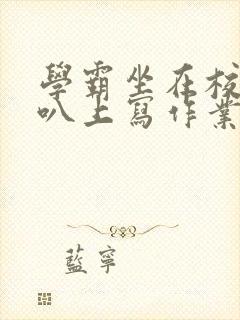 學霸坐在校
叭上寫作業
藍寧